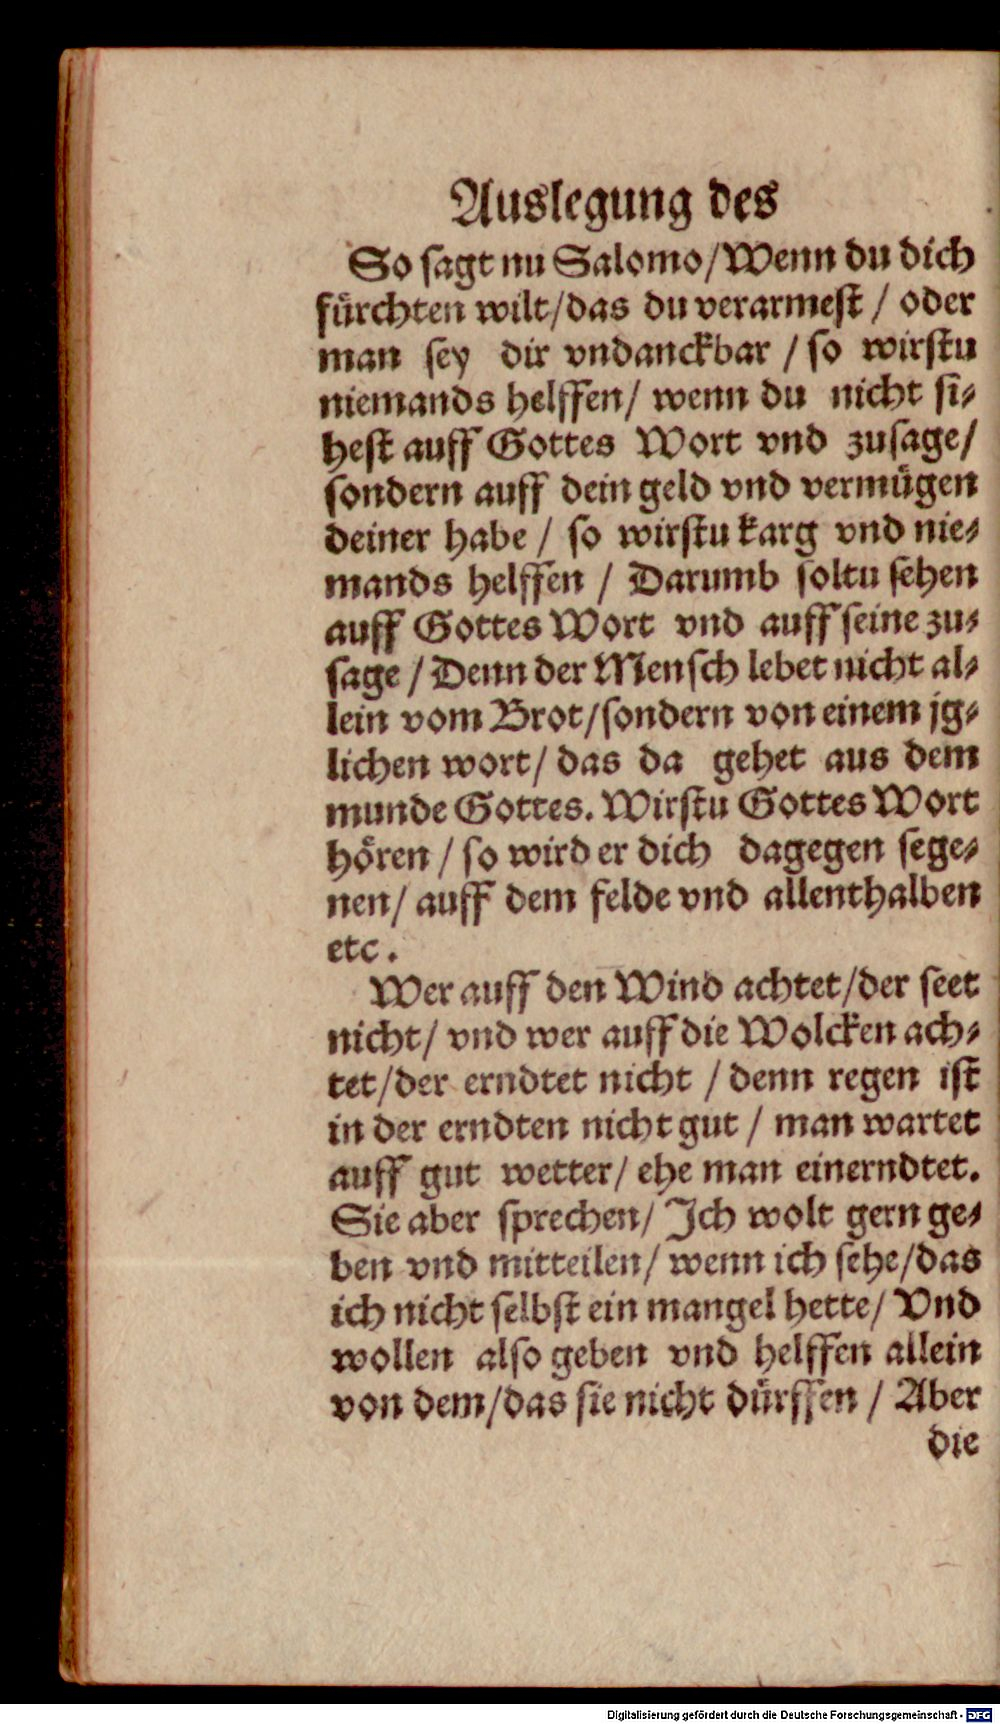 Auslegung des
So sagt nu Salomo/Wenn du dich
fürchten wilt/das du verarmest / oder
man sey dir vndanckbar / so wirstu
niemands helffen/ wenn du nicht si⸗
hest auff Gottes Wort vnd zusage/
sondern auff dein geld vnd vermügen
deiner habe / so wirstu karg vnd nie⸗
mands helffen / Darumb soltu sehen
auff Gottes Wort vnd auff seine zu⸗
sage / Denn der Mensch lebet nicht al⸗
lein vom Brot/sondern von einem jg⸗
lichen wort/ das da gehet aus dem
munde Gottes. Wirstu Gottes Wort
hören / so wird er dich dagegen sege⸗
nen/ auff dem felde vnd allenthalben
etc.
Wer auff den Wind achtet/der seet
nicht/ vnd wer auff die Wolcken ach⸗
tet/der erndtet nicht / denn regen ist
in der erndten nicht gut / man wartet
auff gut wetter/ ehe man einerndtet.
Sie aber sprechen/ Ich wolt gern ge⸗
ben vnd mitteilen/ wenn ich sehe/das
ich nicht selbst ein mangel hette/ Vnd
wollen also geben vnd helffen allein
von dem/das sie nicht dürffen / Aber
die
Digitalisierung gefördert durch die Deutsche Forschungsgemeinschaft - DFG